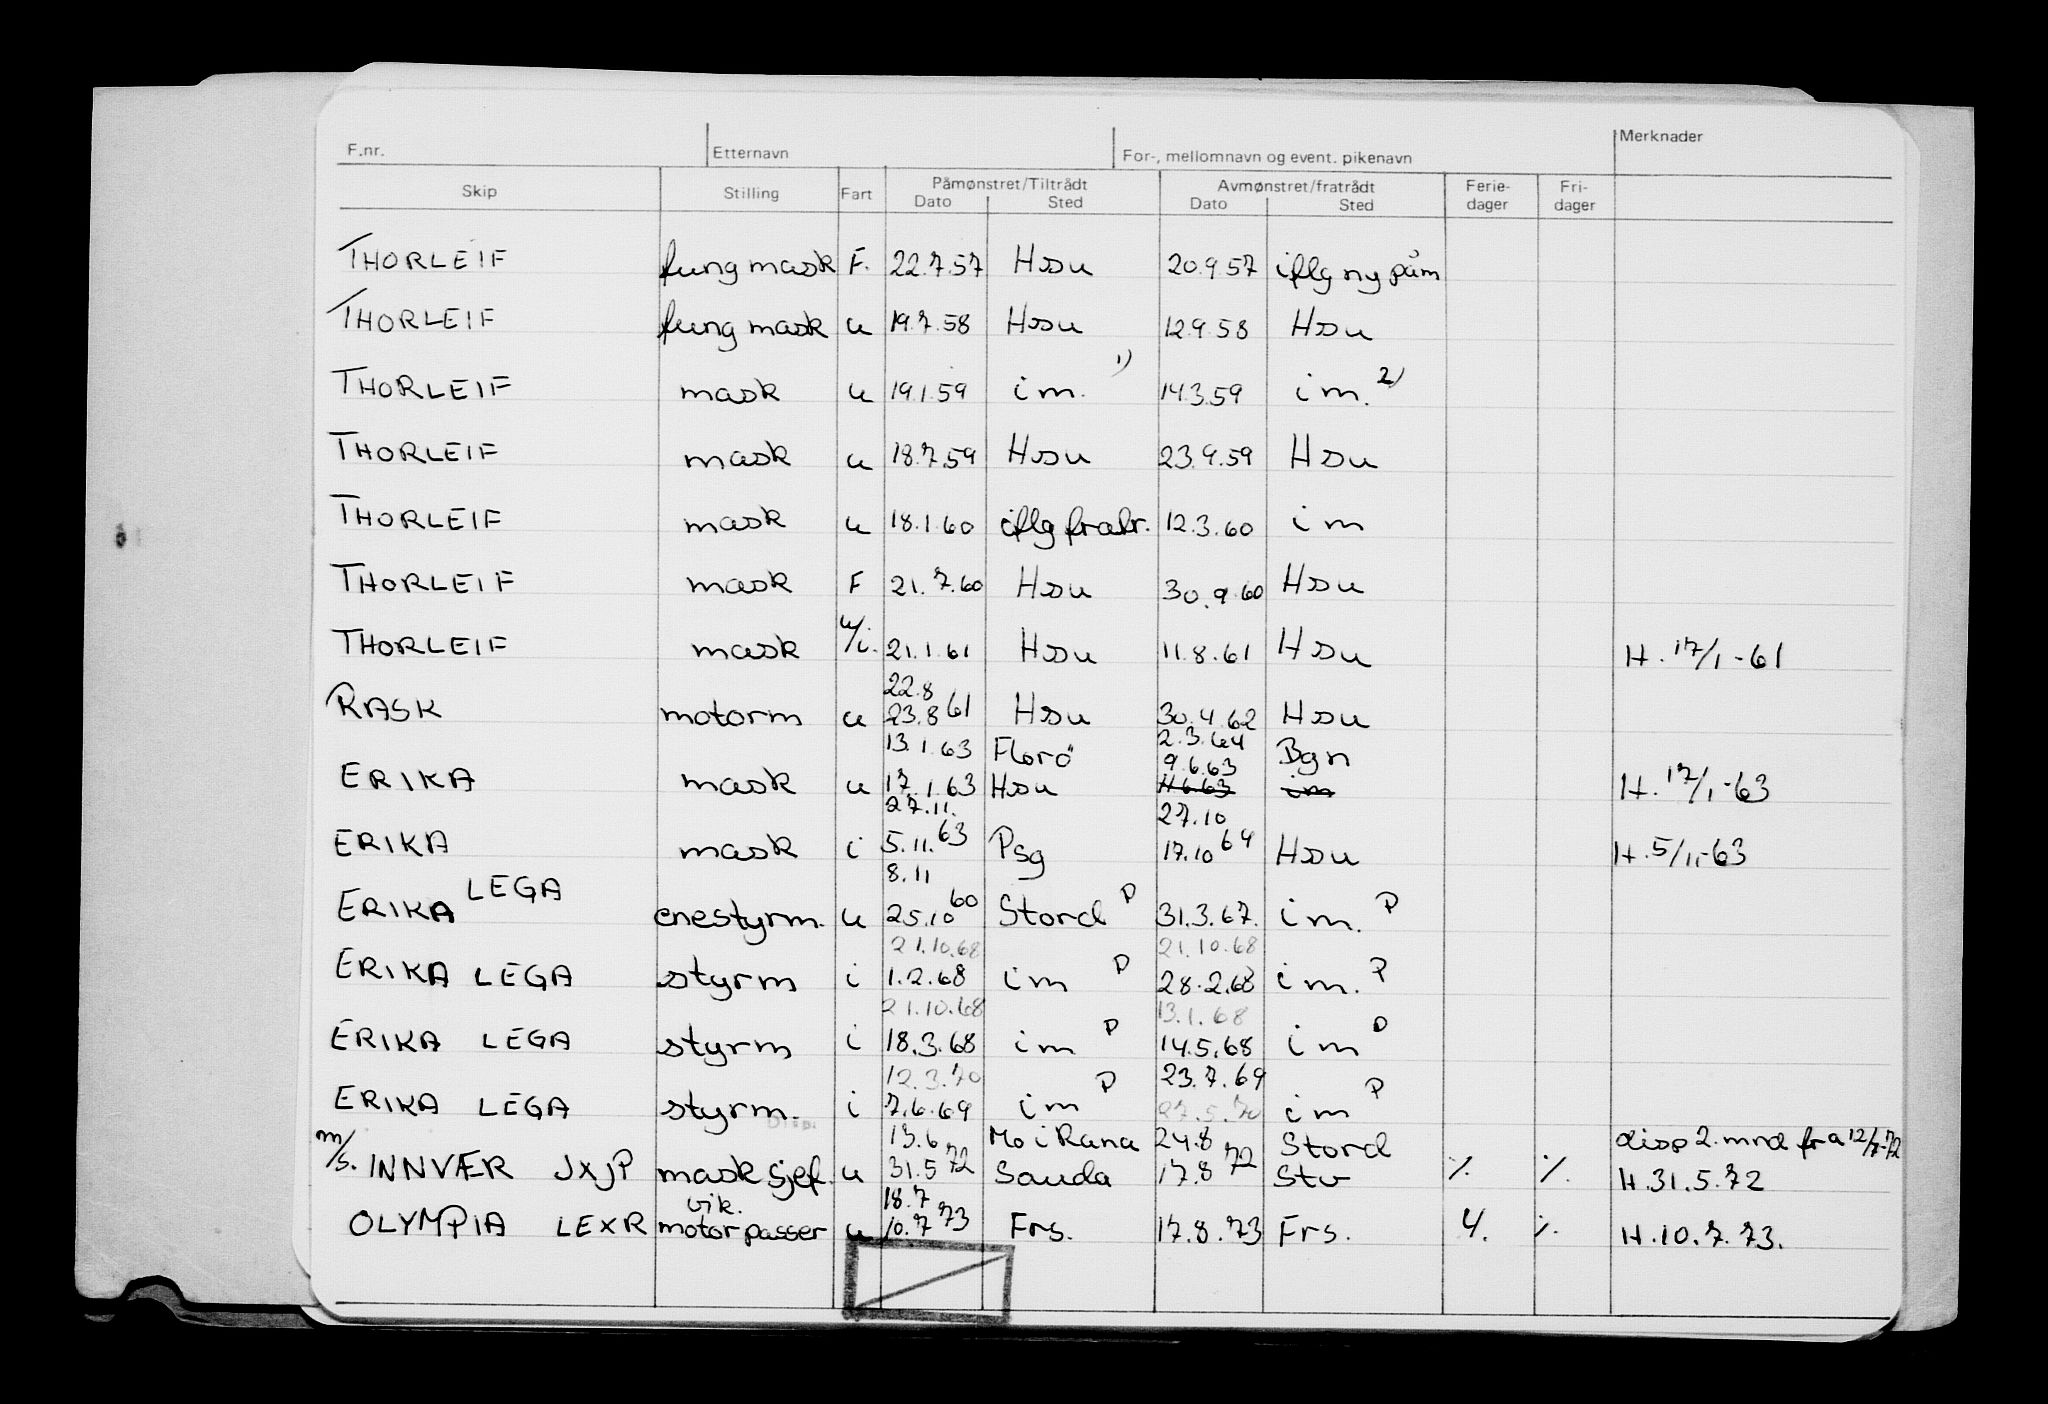 F.nr. Etternavn For-, mellomnavn og event. pikenavn Merknader
Skip Stilling Fart Påmønstret/Tiltrådt Avmønstret/fratrådt Ferie- Fri-
Dato Sted Dato Sted dager dager
THORLEIF fung mask F. 22.7.57 Hsu 20.9.57 iflg ny påm
THORLEIF fung mask u 19.7.58 Hsu 12.9.58 Hsu
THORLEIF mask u 19.1.59 i m. 1) 14.3.59 i m. 2)
THORLEIF mask u 18.7.59 Hsu 23.9.59 Hsu
THORLEIF mask u 18.1.60 iflg fratr. 12.3.60 i m
THORLEIF mask F 21.7.60 Hsu 30.9.60 Hsu
THORLEIF mask u/i. 21.1.61 Hsu 11.8.61 Hsu H. 17/1-61
22.8
RASK motorm u 23.8 61 Hsu 30.4.62 Hsu
13.1.63 Florö 2.3.64 Bgn
9.6.63
ERIKA mask u 17.1.63 Hsu im H. 17/1-63
27.11. 27.10
ERIKA mask i 5.11. 63 Psg 17.10 64 Hsu H. 5/11-63
8.11
ERIKA LEGA enestyrm. u 25.10 60 Stord P 31.3.67. i m. P
21.10.68 21.10.68
ERIKA LEGA styrm i 1.2.68 i m P 28.2.68 i m. P
21.10.68 13.1.68
ERIKA LEGA styrm i 18.3.68 i m P 14.5.68 i m P
12.3.70 23.7.69
ERIKA LEGA styrm. i 7.6.69 i m P 27.5.70 i m P
13.6 Mo i Rana 24.8 Stord disp 2. mnd fra 12/7-72
m/s. INNVÆR JXJP mask sjef. u 31.5 72 Sauda 17.8 72 Stv ./. ./. H.31.5.72
vik. 18.7
OLYMPIA LEXR motorpasser u 10.7 73 Frs. 17.8.73 Frs. 4. ./. H.10.7.73.